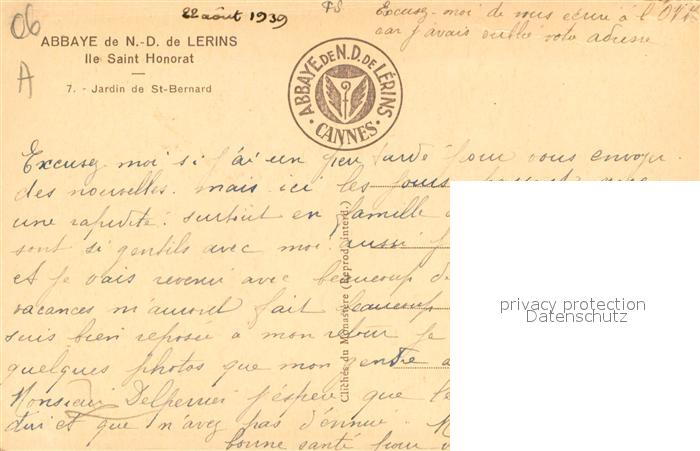 06
A
22 août 1939
Excusez-moi de vous écrire à l'
car j'avais oublié votre adresse
ABBAYE de N.-D. de LERINS
Ile Saint Honorat
7. - Jardin de St-Bernard
ABBAYE DE N.D. DE LÉRINS
• CANNES •
Excusez moi si j'ai un peu tardé pour vous envoyer
des nouvelles. mais ici les jours passent avec
une rapidité. surtout en famille
sont si gentils avec moi. aussi
et je vais revenir avec beaucoup de
vacances m'auront fait beaucoup
suis bien reposée à mon retour je
quelques photos que mon gendre a
Monsieur Delperrier j'espère que
dui et que n'avez pas d'ennui.
bonne santé pour
Clichés du Monastère (Reprod. interd.)
privacy protection
Datenschutz